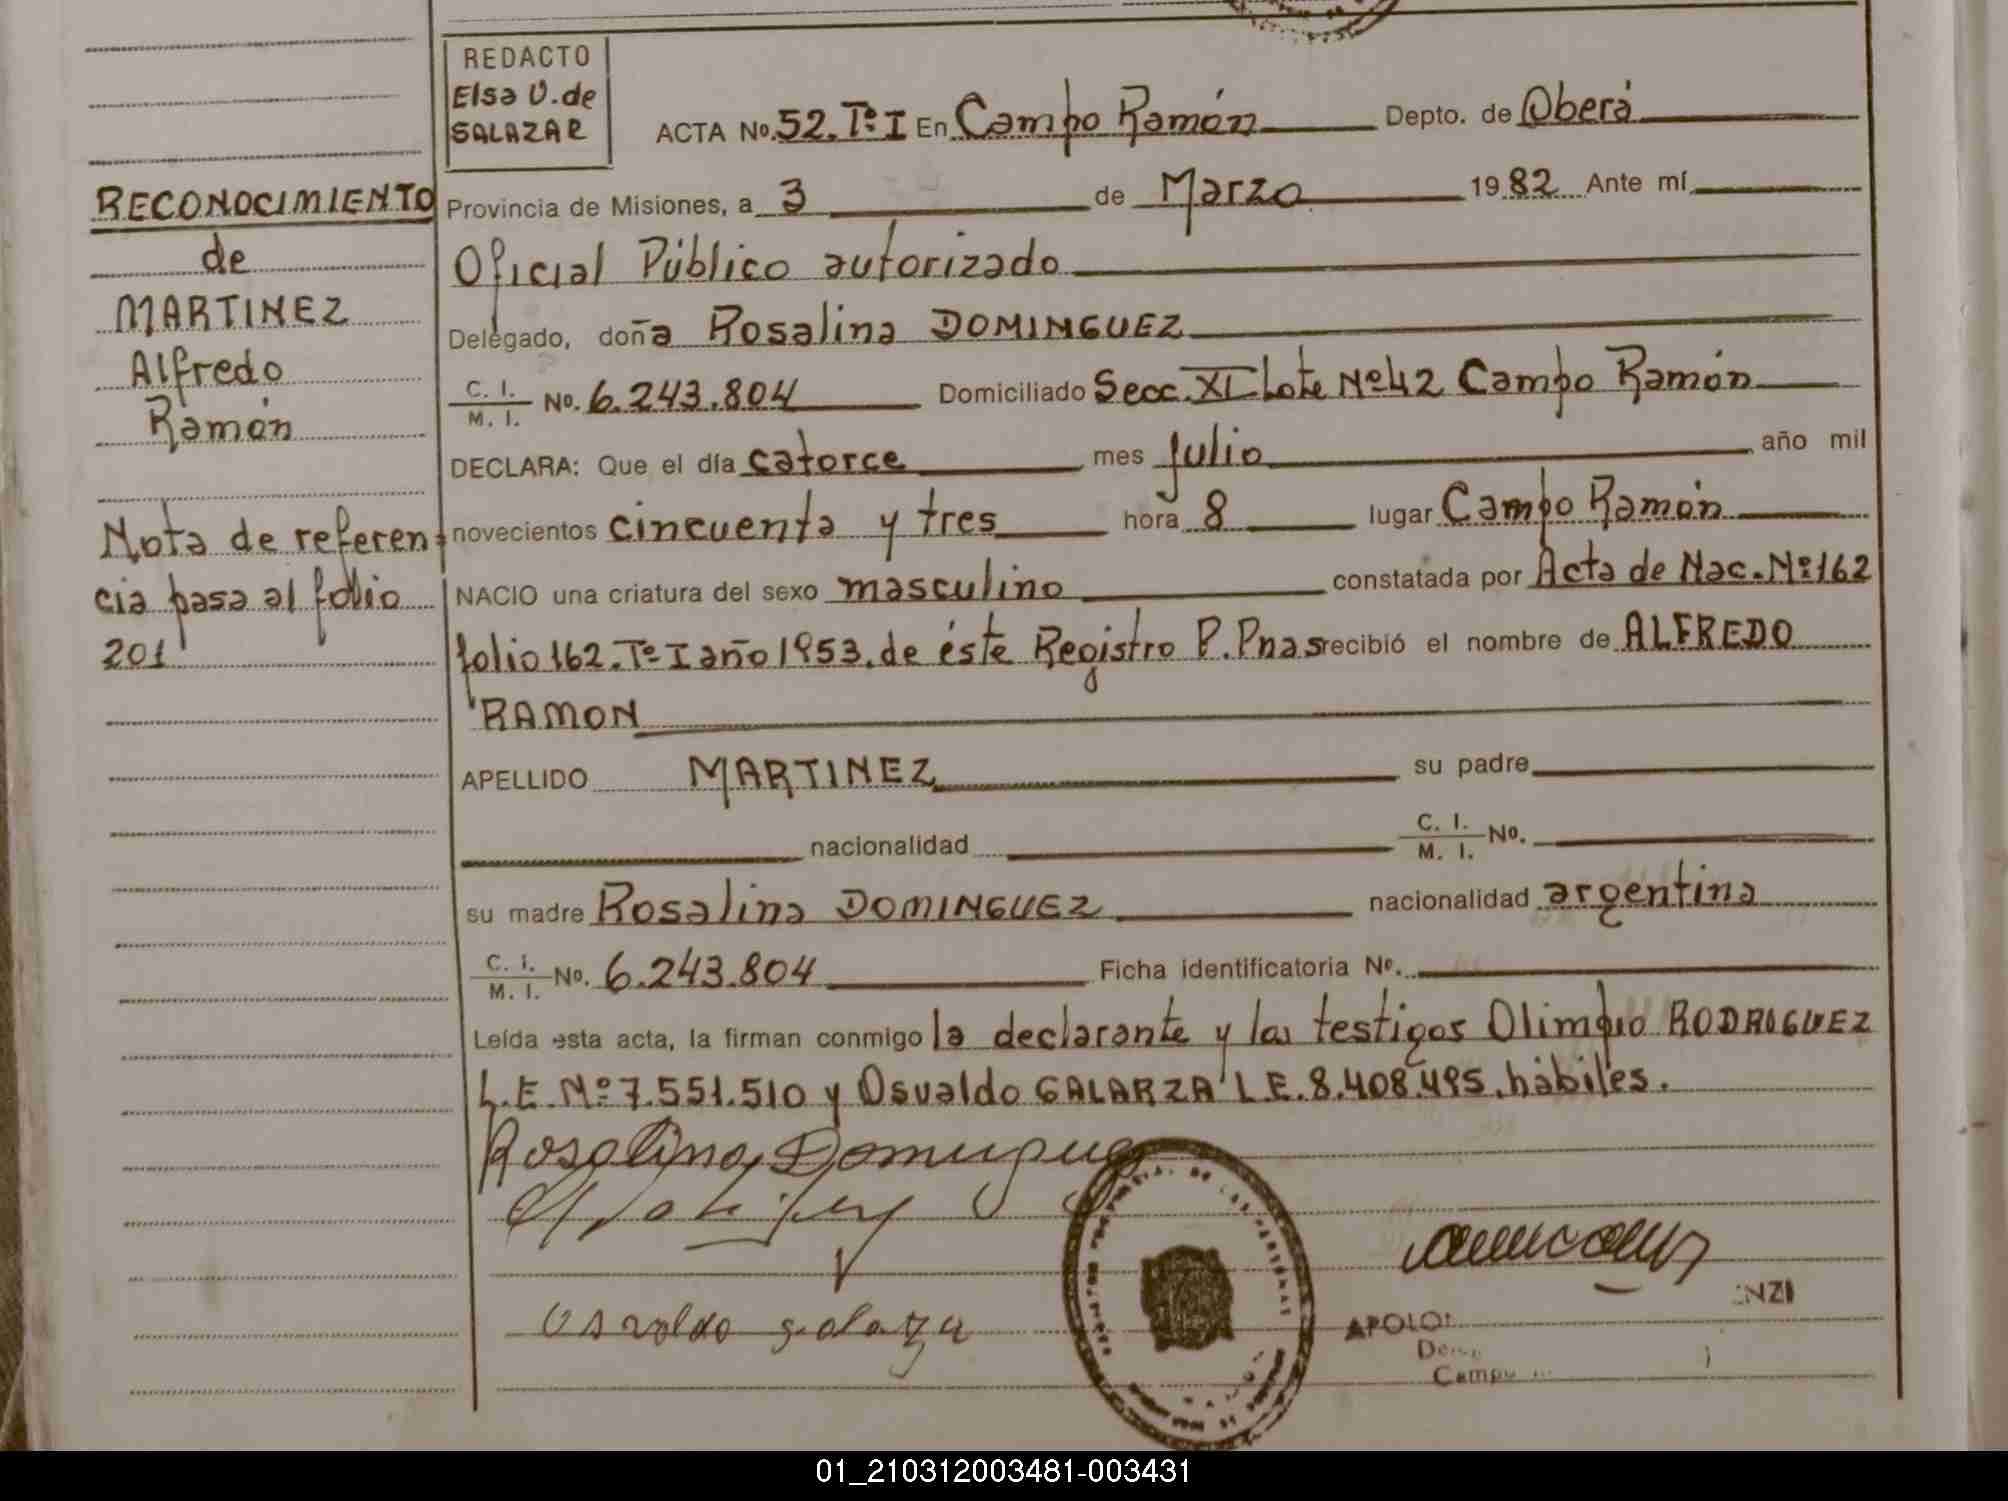 REDACTO
Elsa V. de
SALAZAR
ACTA No. 52. Tº I En Campo Ramón Depto. de Oberá
RECONOCIMIENTO
de
MARTINEZ
Alfredo
Ramón
Nota de referen
cia pasa al folio
201
Provincia de Misiones, a 3 de Marzo 1982 Ante mí
Oficial Público autorizado
Delegado, doña Rosalina DOMINGUEZ
C. I. / M. I. No. 6.243.804 Domiciliado Secc. XI Lote Nº 42 Campo Ramón
DECLARA: Que el día catorce mes julio año mil
novecientos cincuenta y tres hora 8 lugar Campo Ramón
NACIO una criatura del sexo masculino constatada por Acta de Nac. Nº 162
folio 162. Tº I año 1953. de éste Registro P. Pnas recibió el nombre de ALFREDO
RAMON
APELLIDO MARTINEZ su padre
nacionalidad C. I. / M. I. No.
su madre Rosalina DOMINGUEZ nacionalidad argentina
C. I. / M. I. No. 6.243.804 Ficha identificatoria No.
Leída esta acta, la firman conmigo la declarante y los testigos Olimpio RODRIGUEZ
L.E. Nº 7.551.510 y Osvaldo GALARZA L.E. 8.408.495. hábiles.
Rosalina Dominguez
Osvaldo galarza
01_210312003481-003431